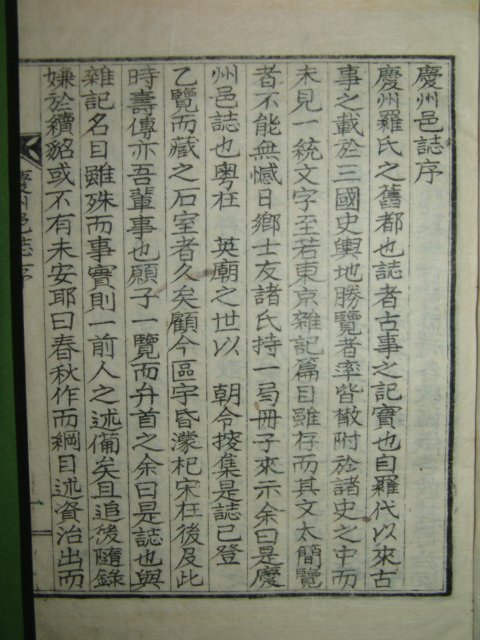 慶州邑誌序
慶州羅氏之舊都也誌者古事之記實也自羅代以來古
事之載於三國史輿地勝覽者率皆散附於諸史之中而
未見一統文字至若東京雜記篇目雖存而其文太簡覽
者不能無憾日鄉士友諸氏持一局冊子來示余曰是慶
州邑誌也粤在 英廟之世以 朝令按集是誌已登
乙覽而藏之石室者久矣顧今區宇昏濛杞宋在後及此
時壽傳亦吾輩事也願子一覽而弁首之余曰是誌也與
雜記名目雖殊而事實則一前人之述備矣且追後隨錄
嫌於續貂或不有未安耶曰春秋作而綱目述資治出而
慶州邑誌序